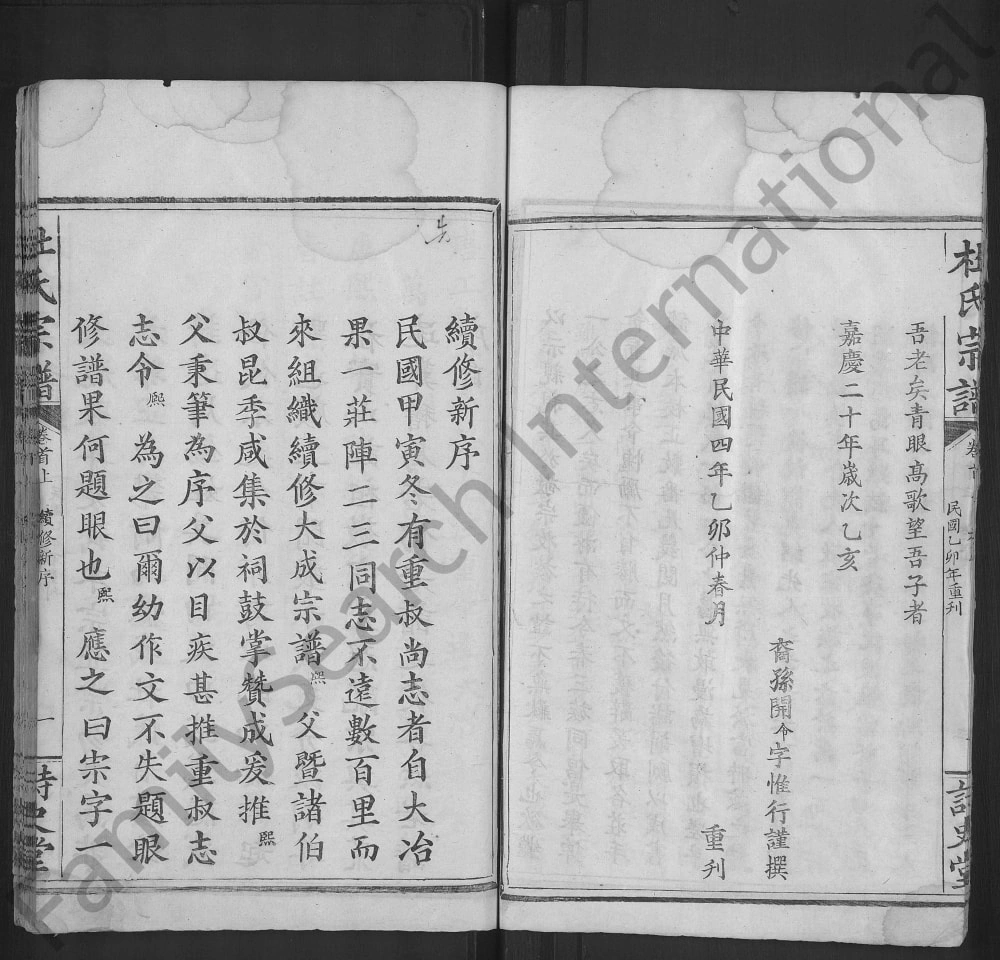 杜氏宗譜
卷首
民國乙卯年重刊
詩史堂
吾老矣青眼高歌望吾子者
嘉慶二十年歲次乙亥
裔孫開令字惟行謹撰
中華民國四年乙卯仲春月
重刊
續修新序
民國甲寅冬有重叔尚志者自大冶
果一莊陣二三同志不遠數百里而
來組織續修大成宗譜熙父暨諸伯
叔昆季咸集於祠鼓掌贊成爰推熙
父秉筆為序父以目疾甚推重叔志
志令熙為之曰爾幼作文不失題眼
修譜果何題眼也熙應之曰宗字一
杜氏宗譜
卷首上
續修新序
一
詩史堂
FamilySearch International